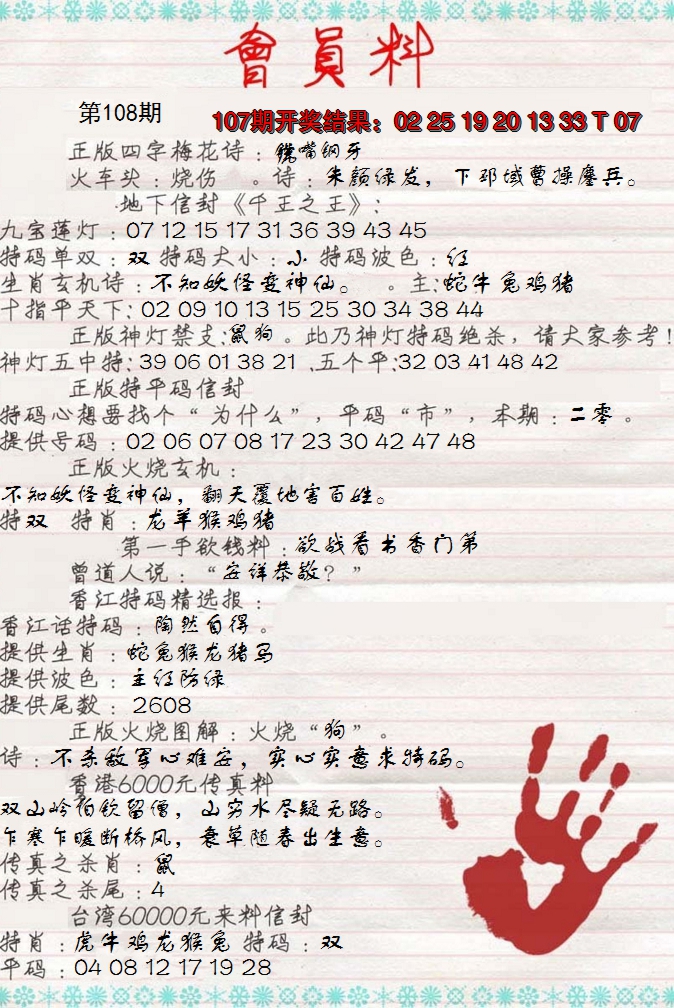 會員料
第108期
107期开奖结果：02 25 19 20 13 33 T 07
正版四字梅花诗：镜嘴钢牙
火车头：烧伤 。诗：朱颜绿发，下邳城曹操鏖兵。
地下信封《千王之王》：
九宝莲灯：07 12 15 17 31 36 39 43 45
特码单双：双 特码大小：小 特码波色：红
生肖玄机诗：不知妖怪变神仙。 。主：蛇牛兔鸡猪
十指平天下：02 09 10 13 15 25 30 34 38 44
正版神灯禁支：鼠狗。此乃神灯特码绝杀，请大家参考！
神灯五中特：39 06 01 38 21 、五个平：32 03 41 48 42
正版特平码信封
特码心想要找个“为什么”，平码“市”，本期：二零。
提供号码：02 06 07 08 17 23 30 42 47 48
正版火烧玄机：
不知妖怪变神仙，翻天覆地害百姓。
特双 特肖：龙羊猴鸡猪
第一手欲钱料：欲战看书香门第
曾道人说：“安详恭敬？”
香江特码精选报：
香江话特码：陶然自得。
提供生肖：蛇兔猴龙猪马
提供波色：主红防绿
提供尾数：2608
正版火烧图解：火烧“狗”。
诗：不杀敌军心难安，实心实意求特码。
香港6000元传真料
双山岭伯钦留僧，山穷水尽疑无路。
乍寒乍暖断桥风，衰草随春出生意。
传真之杀肖：鼠
传真之杀尾：4
台湾60000元来料信封
特肖：虎牛鸡龙猴兔 特码：双
平码：04 08 12 17 19 28